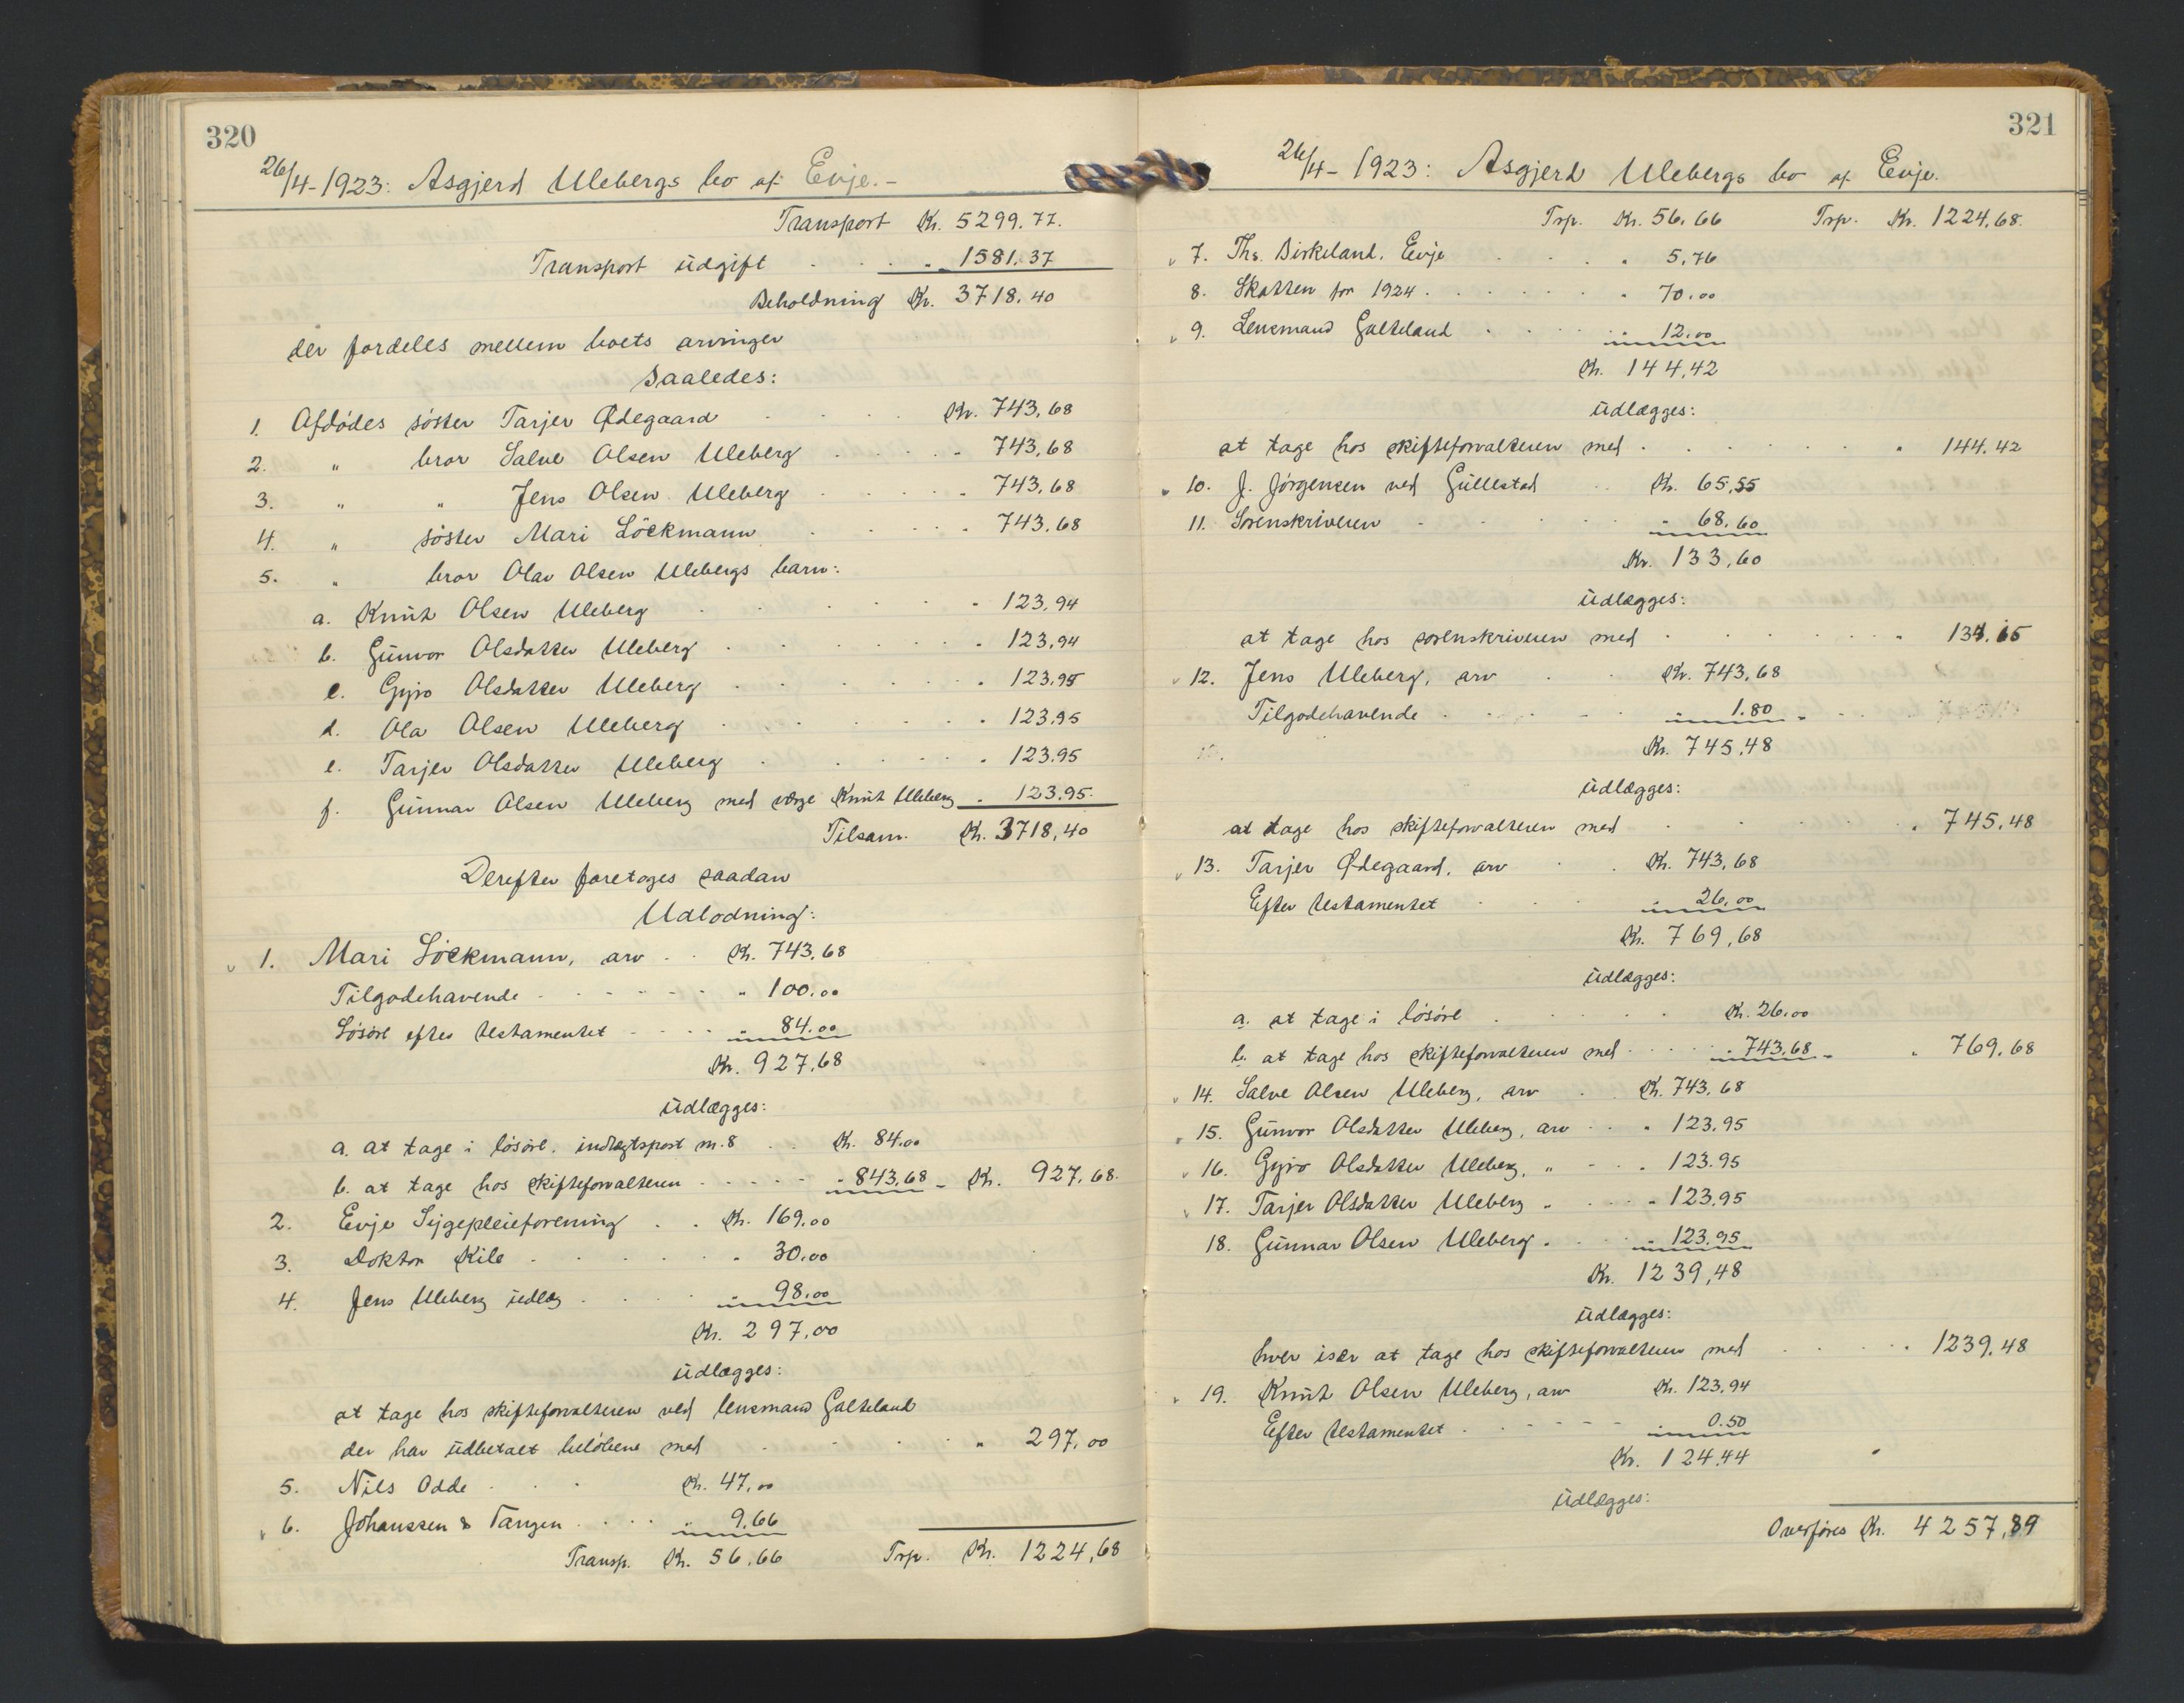 320
26/4-1923: Asgjerd Ulebergs bo af Evje.-
Transport Kr. 5299.77.
Transport üdgift . . „ 1581.37
Beholdning Kr. 3718.40
der fordeles mellem boets arvinger
saaledes:
1. Afdødes søster Tarjer Ødegaard . . . . Kr. 743,68
2. „ bror Salve Olsen Uleberg . . . . „ 743,68
3. „ „ Jens Olsen Uleberg . . . . „ 743,68
4. „ søster Mari Löckmann . . . . „ 743,68
5. „ bror Olav Olsen Ulebergs barn:
a. Knüt Olsen Uleberg . . . . . „ 123,94
b. Günvor Olsdatter Uleberg . . . . . „ 123,94
c. Gyro Olsdatter Uleberg . . . . . „ 123.95
d. Ola Olsen Uleberg . . . . . „ 123.95
e. Tarjer Olsdatter Uleberg . . . . . „ 123.95
f. Günnar Olsen Uleberg med værge Knüt Uleberg „ 123.95.
Tilsam. Kr. 3718,40
Derefter foretoges saadan
Udlodning:
1. Mari Löckmann, arv . . Kr. 743,68
Tilgodehavende . . . . . „ 100.00
Løsøre efter testamentet . . . . „ 84.00
Kr. 927,68
üdlægges:
a. at tage i løsøre. indtægtspost nr. 8 . . Kr. 84.00
b. at tage hos skifteforvalteren . . . . . „ 843,68 - Kr. 927,68.
2. Evje Sygepleieforening . . Kr. 169.00
3. Doktor Kile . . . . . „ 30.00
4. Jens Uleberg üdlæg . . . . „ 98.00
Kr. 297,00
üdlægges:
at tage hos skifteforvalteren ved lensmand Galteland
der har üdbetalt beløbene med . . . . . „ 297,00
5. Nils Odde . . . Kr. 47,00
6. Johanssen & Tangen . . . . „ 9,66
Transp. Kr. 56,66 Trp. Kr. 1224,68
321
26/4-1923: Asgjerd Ulebergs bo af Evje.
Trp. Kr. 56,66 Trp. Kr. 1224,68.
7. Ths. Birkeland. Evje . . . . „ 5,76
8. Skatten for 1924 . . . . . . „ 70.00
9. Lensmand Galteland . . . . „ 12.00
Kr. 144,42
üdlægges:
at tage hos skifteforvalteren med . . . . . . „ 144.42
10. J. Jörgensen ved Güllestad . . Kr. 65,55
11. Sorenskriveren . . . . . „ 68,60
Kr. 133,60
üdlægges:
at tage hos sorenskriveren med . . . . . . „ 134.15
12. Jens Uleberg, arv . . Kr. 743,68
Tilgodehavende . . . . „ 1.80
Kr. 745,48
üdlægges:
at tage hos skifteforvalteren med . . . . „ 745,48
13. Tarjer Ødegaard, arv . . Kr. 743,68
Efter testamentet . . . „ 26,00
Kr. 769,68
üdlægges:
a. at tage i løsøre . . . . . Kr. 26.00
b. at tage hos skifteforvalteren med . . . . „ 743.68 - „ 769,68
14. Salve Olsen Uleberg, arv . . Kr. 743,68
15. Günvor Olsdatter Uleberg, arv . . „ 123.95
16. Gyro Olsdatter Uleberg, „ . . . „ 123.95
17. Tarjer Olsdatter Uleberg „ . . . „ 123.95
18. Günnar Olsen Uleberg „ . . . „ 123.95
Kr. 1239,48
üdlægges:
hver især at tage hos skifteforvalteren med . . . . . „ 1239,48
19. Knüt Olsen Uleberg, arv Kr. 123,94
Efter testamentet . . . . . „ 0.50
Kr. 124,44
üdlægges:
Overføres Kr. 4257,89